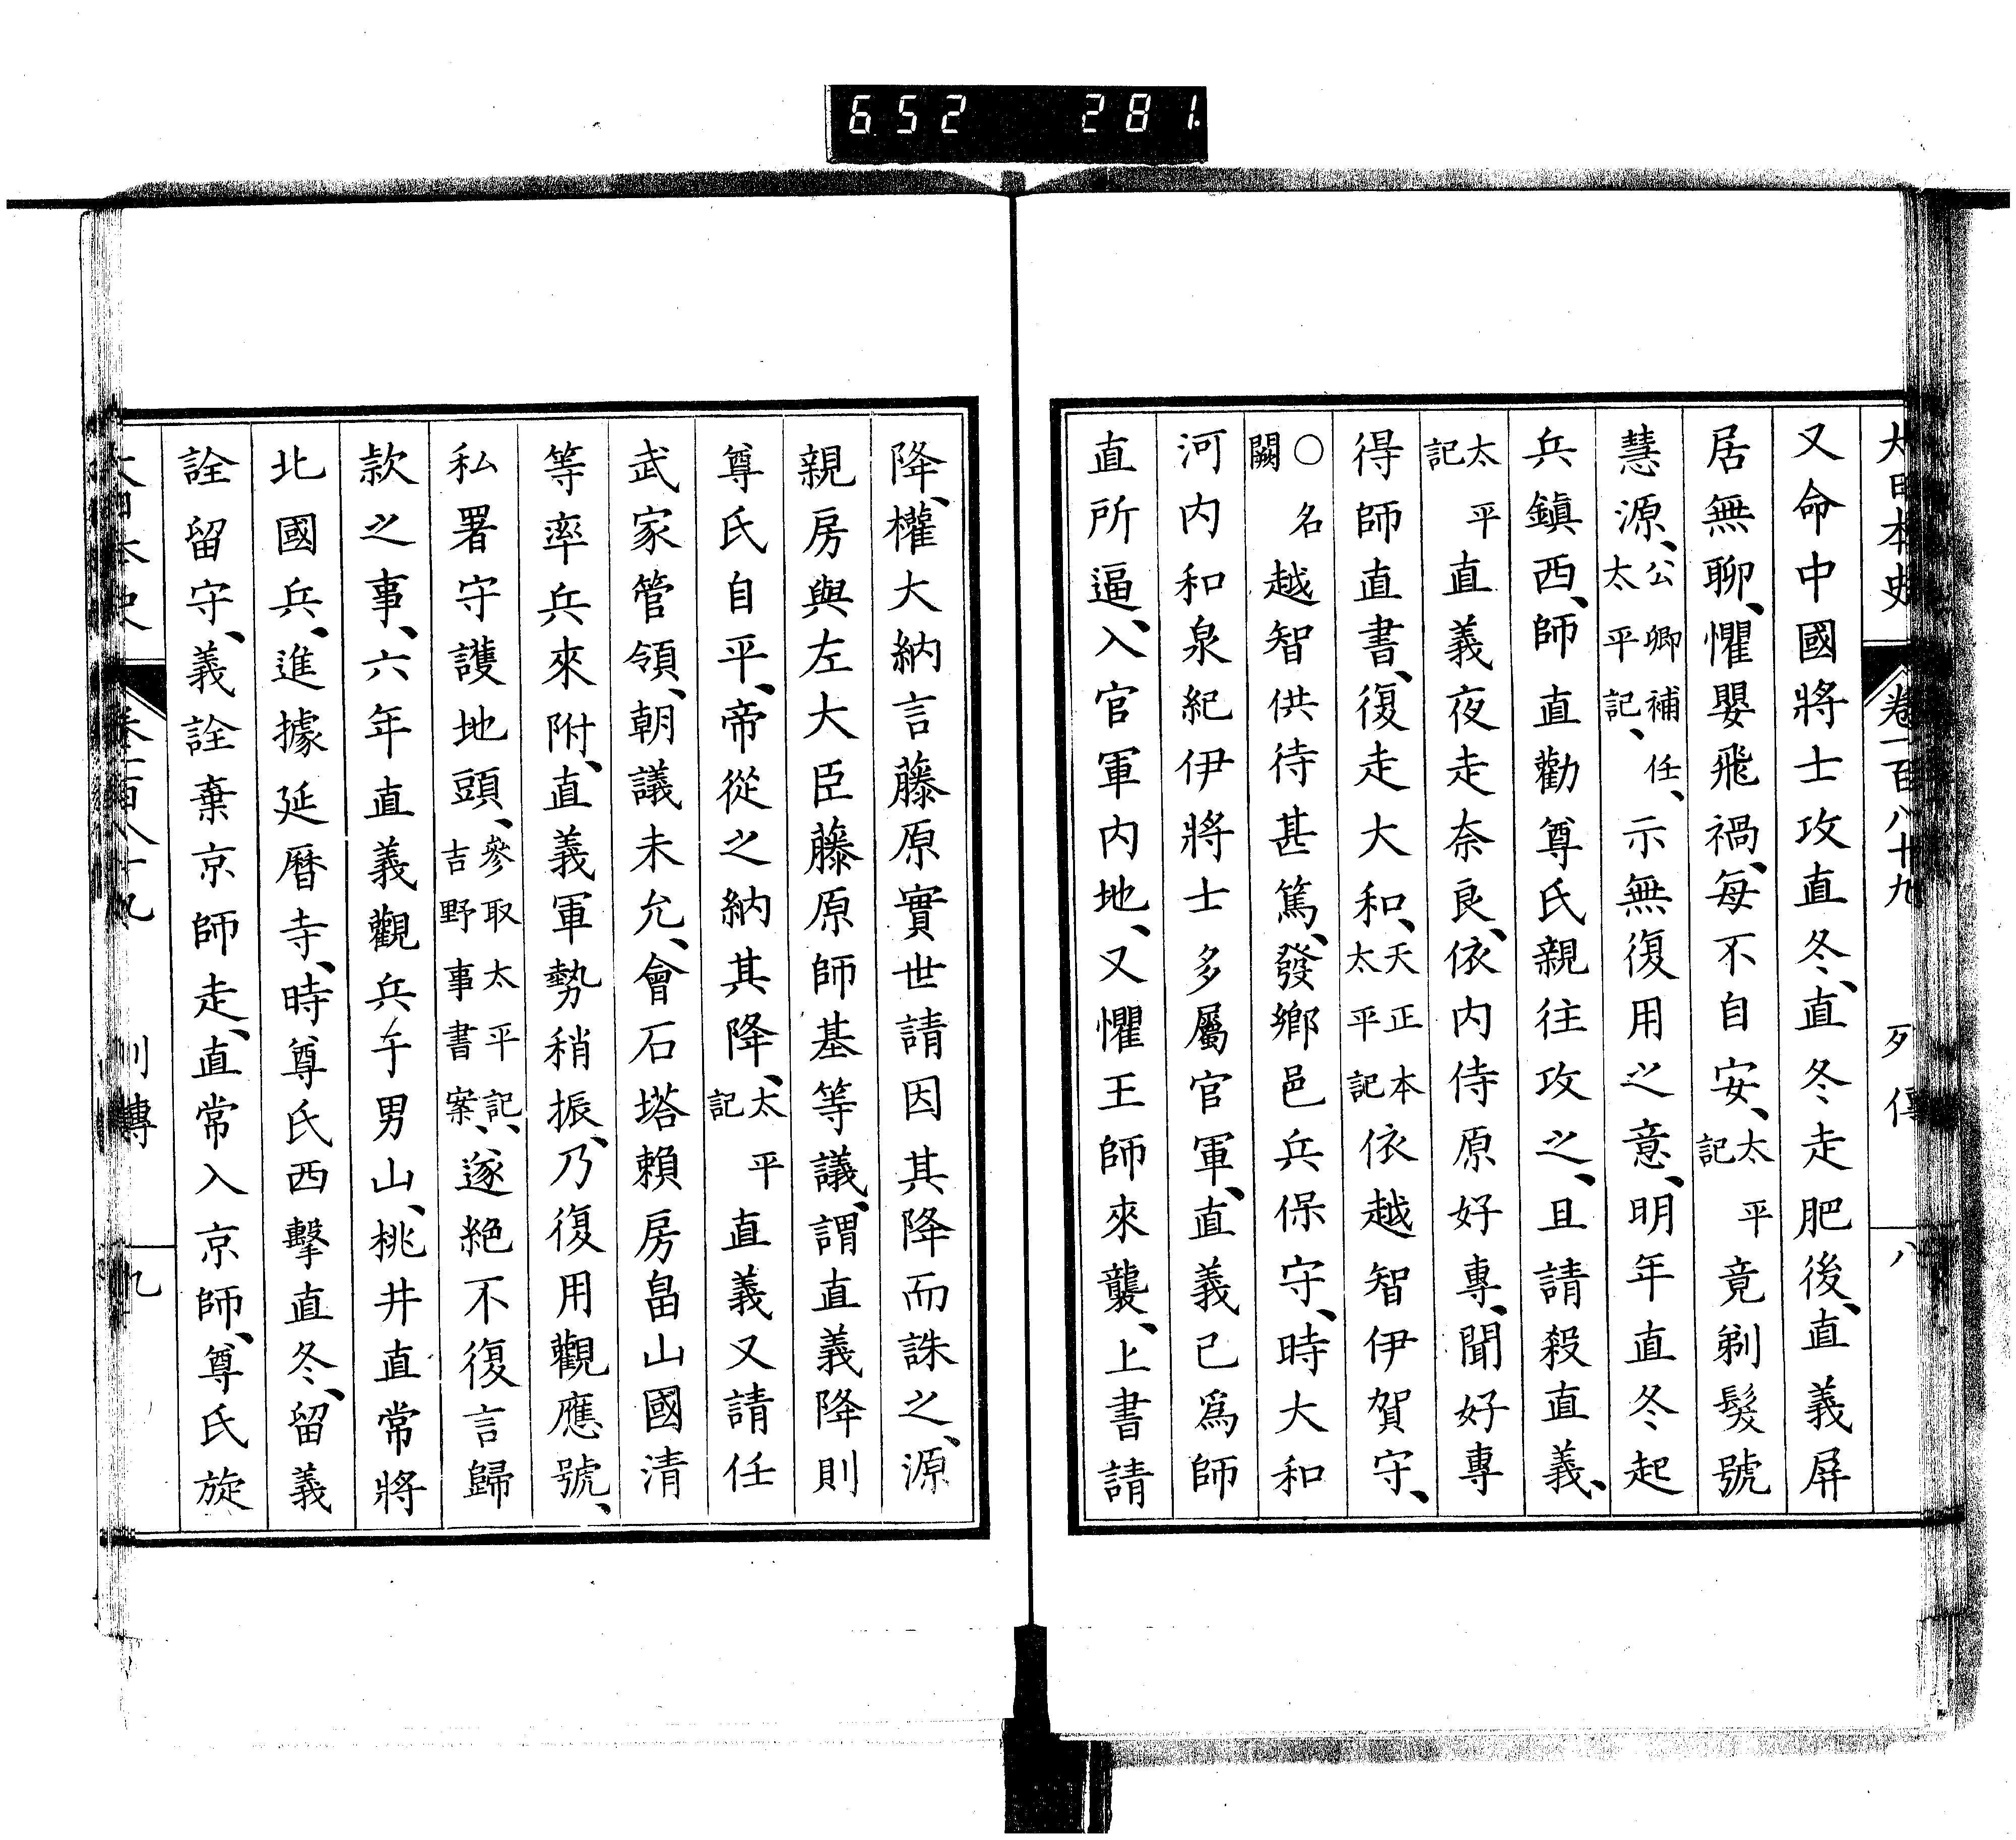 652 281.
大日本史 卷一百八十九 列傳 八
又命中國將士攻直冬、直冬走肥後、直義屏
居無聊、懼嬰飛禍、每不自安、太平記竟剃髮號
慧源、公卿補任、太平記、示無復用之意、明年直冬起
兵鎮西、師直勸尊氏親往攻之、且請殺直義、
太平記直義夜走奈良、依内侍原好專、聞好專
得師直書、復走大和、天正本太平記依越智伊賀守、
○名闕越智供待甚篤、發鄉邑兵保守、時大和
河内和泉紀伊將士多屬官軍、直義已爲師
直所逼、入官軍内地、又懼王師來襲、上書請
降、權大納言藤原實世請因其降而誅之、源
親房與左大臣藤原師基等議、謂直義降則
尊氏自平、帝從之納其降、太平記直義又請任
武家管領、朝議未允、會石塔賴房畠山國清
等率兵來附、直義軍勢稍振、乃復用觀應號、
私署守護地頭、參取太平記、吉野事書案、遂絕不復言歸
款之事、六年直義觀兵于男山、桃井直常將
北國兵、進據延曆寺、時尊氏西擊直冬、留義
詮留守、義詮棄京師走、直常入京師、尊氏旋
大日本史 卷一百八十九 列傳 九